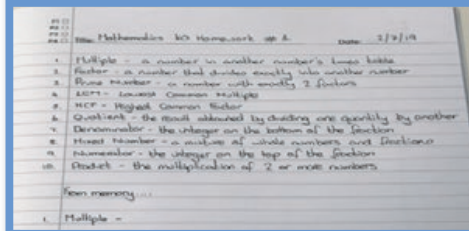 Title: Mathematics KO Homework # 1 Date: 2/7/19
1. Multiple - a number in another number's times table
2. Factor - a number that divides exactly into another number
3. Prime Number - a number with exactly 2 factors
4. LCM - Lowest Common Multiple
5. HCF - Highest Common Factor
6. Quotient - the result obtained by dividing one quantity by another
7. Denominator - the integer on the bottom of the fraction
8. Mixed Number - a mixture of whole numbers and fractions
9. Numerator - the integer on the top of the fraction
10. Product - the multiplication of 2 or more numbers
From memory....
1. Multiple -